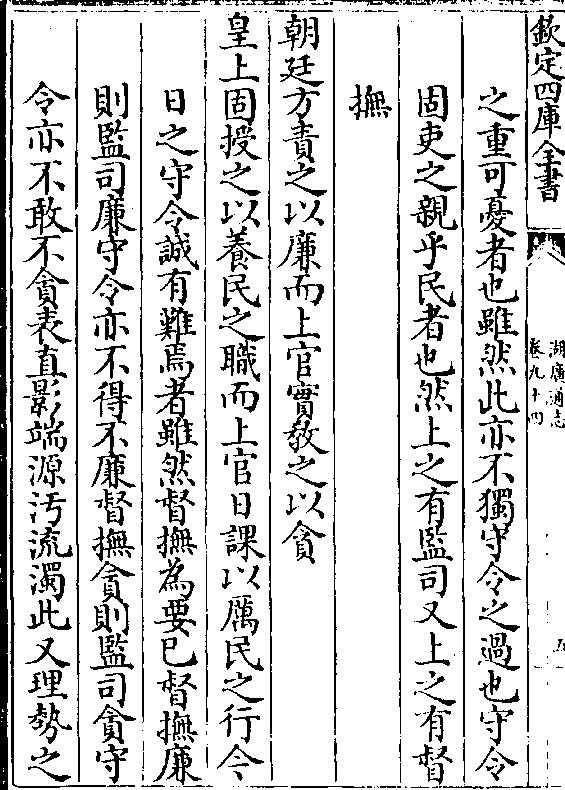 欽定四庫全書
湖廣通志
卷九十四
之重可憂者也雖然此亦不獨守令之過也守令
固吏之親乎民者也然上之有監司又上之有督
撫
朝廷方責之以廉而上官實教之以貪
皇上固授之以養民之職而上官日課以厲民之行今
日之守令誠有難焉者雖然督撫為要已督撫廉
則監司廉守令亦不得不廉督撫貪則監司貪守
令亦不敢不貪表直影端源污流濁此又理勢之